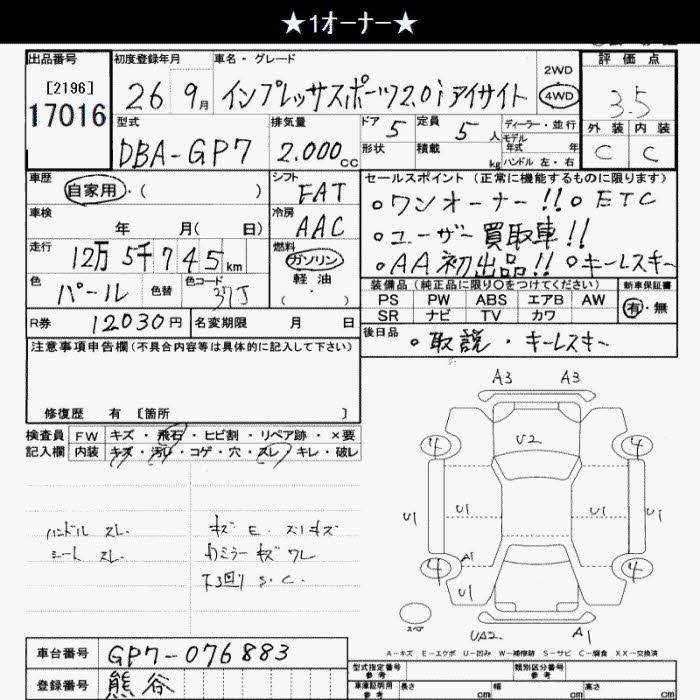 ★1オーナー★
出品番号 初度登録年月 車名・グレード 評価点
[2196]
17016
26 9月 インプレッサスポーツ2.0i アイサイト 2WD 4WD 3.5
型式 排気量 ドア 5 定員 5人 ディーラー・並行 外装 内装
DBA-GP7 2.000cc 形状 積載 kg モデル年式 年 ハンドル 左・右 C C
車歴 シフト セールスポイント(正常に機能するものに限ります)
自家用・( ) FAT 。ワンオーナー!!。ETC
車検 冷房 。ユーザー買取車!!
年 月( 日) AAC 。AA初出品!!。キーレスキー
走行 燃料
12万5千745km ガソリン
色 色替 色コード 軽油
パール 37J ( ・ )
装備品(純正品に限り〇をつけてください) 新車保証書
PS PW ABS エアB AW 有・無
SR ナビ TV カワ
R券 12030円 名変期限 月 日
後日品 。取説・キーレスキー
注意事項申告欄(不具合内容等は具体的に記入して下さい)
修復歴 有 [箇所 ]
検査員 FW キズ・飛石・ヒビ割・リペア跡・×要
記入欄 内装 キズ・汚れ・コゲ・穴・スレ・キレ・破レ
ハンドル スレ キズ E. スリキズ
シート スレ カミラー キズ ワレ
下回り S.C.
A3 A3
4 U2 4
U1 U1 U1 U1
A1
4 4
U1
スペア UA2 A1
A−キズ E−エクボ U−凹み W−補修跡 S−サビ C−腐食 XX−交換済
車台番号 GP7-076883
登録番号 熊谷
型式指定番号 参考 類別区分番号 参考
車庫証明用 参考 長さ cm 幅 cm 高さ cm